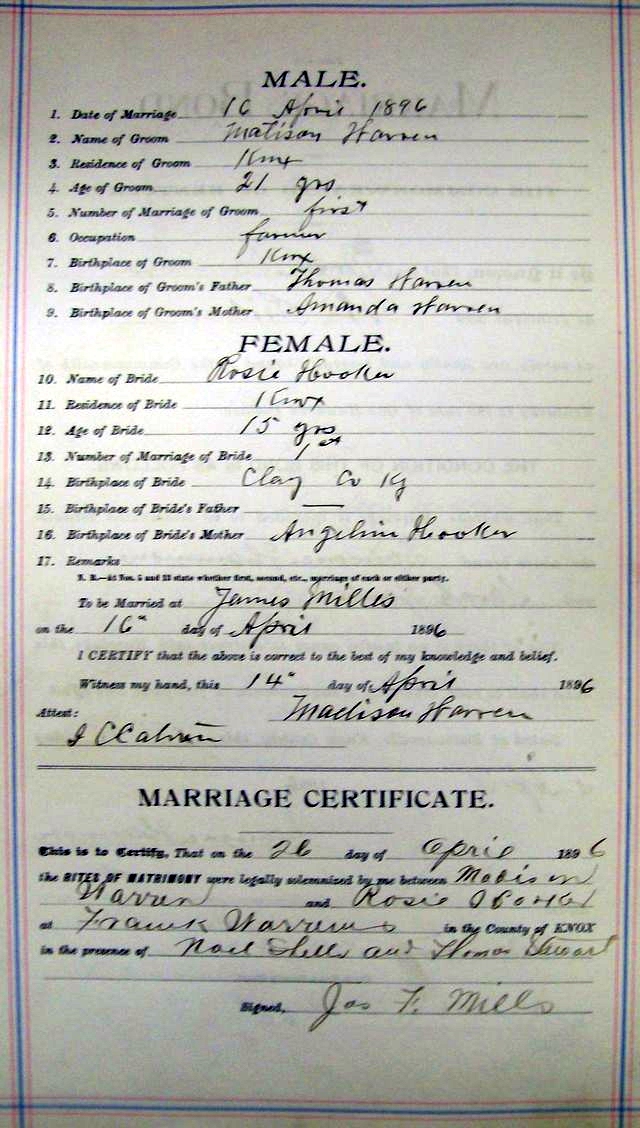 MALE.
1. Date of Marriage 16 April 1896
2. Name of Groom Matison Warren
3. Residence of Groom Knox
4. Age of Groom 21 yrs
5. Number of Marriage of Groom first
6. Occupation farmer
7. Birthplace of Groom Knox
8. Birthplace of Groom's Father Thomas Warren
9. Birthplace of Groom's Mother Amanda Warren
FEMALE.
10. Name of Bride Rosie Hooker
11. Residence of Bride Knox
12. Age of Bride 15 yrs
13. Number of Marriage of Bride 1st
14. Birthplace of Bride Clay Co Ky
15. Birthplace of Bride's Father —
16. Birthplace of Bride's Mother Angeline Hooker
17. Remarks
N. B.—At Nos. 5 and 13 state whether first, second, etc., marriage of each or either party.
To be Married at James Milles
on the 16" day of April 1896
I CERTIFY that the above is correct to the best of my knowledge and belief.
Witness my hand, this 14" day of April 1896
Attest: Madison Warren
MARRIAGE CERTIFICATE.
This is to Certify, That on the 26 day of April 1896
the RITES OF MATRIMONY were legally solemnized by me between Madison
Warren and Rosie Hooker
at Frank Warrens in the County of KNOX
in the presence of and Thomas Stewart
Signed, Jas F. Mills